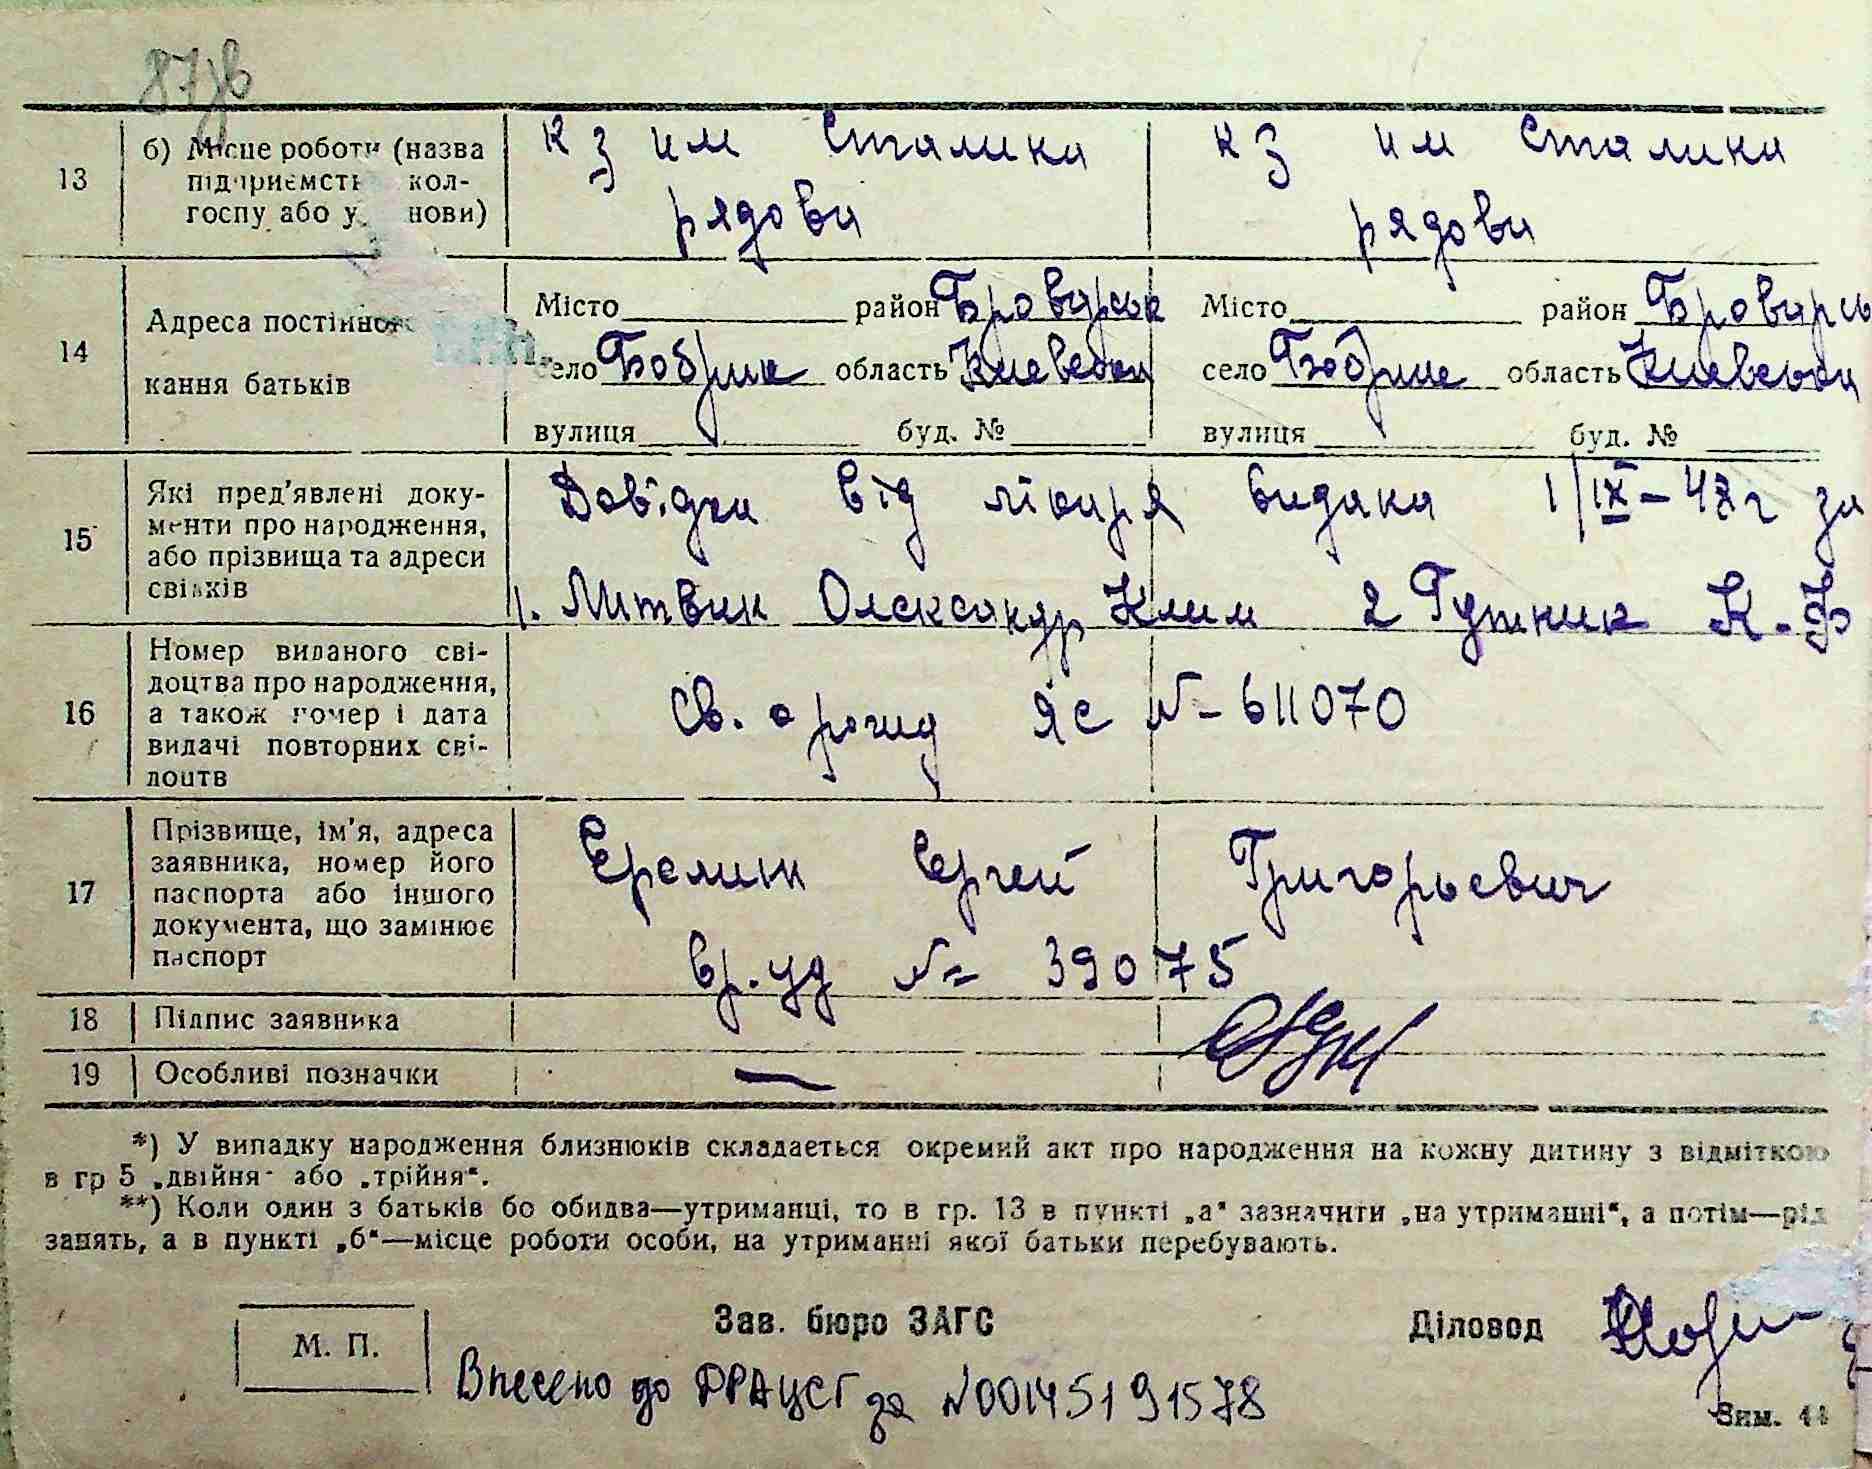 87зв
13 б) Місце роботи (назва підприємств кол-госпу або у нови)
к з им Сталина
рядови
к з им Сталина
рядови
14 Адреса постійного
кання батьків
Місто район Броварськ
село Бобрик область Киевської
вулиця буд. №
Місто район Броварсь
село Бобрик область Киевської
вулиця буд. №
15 Які пред'явлені доку-
менти про народження,
або прізвища та адреси
свідків
Довідка від лікаря видана 1/IX-47г за
1. Литвин Олександр Клим 2 Гутник К.Ф
16 Номер виданого сві-
доцтва про народження,
а також номер і дата
видачі повторних сві-
доцтв
Св. о рожд ЯС № 611070
17 Прізвище, ім'я, адреса
заявника, номер його
паспорта або іншого
документа, що замінює
паспорт
Сергей Григорьевич
вр. уд № 39075
18 Підпис заявника
19 Особливі позначки —
*) У випадку народження близнюків складається окремий акт про народження на кожну дитину з відміткою
в гр 5 „двійня" або „трійня".
**) Коли один з батьків бо обидва—утриманці, то в гр. 13 в пункті „а" зазначити „на утриманні", а потім—рід
занять, а в пункті „б"—місце роботи особи, на утриманні якої батьки перебувають.
М. П.
Зав. бюро ЗАГС
Діловод
Внесено до ДРАЦСГ за №00145191578
Зим. 44